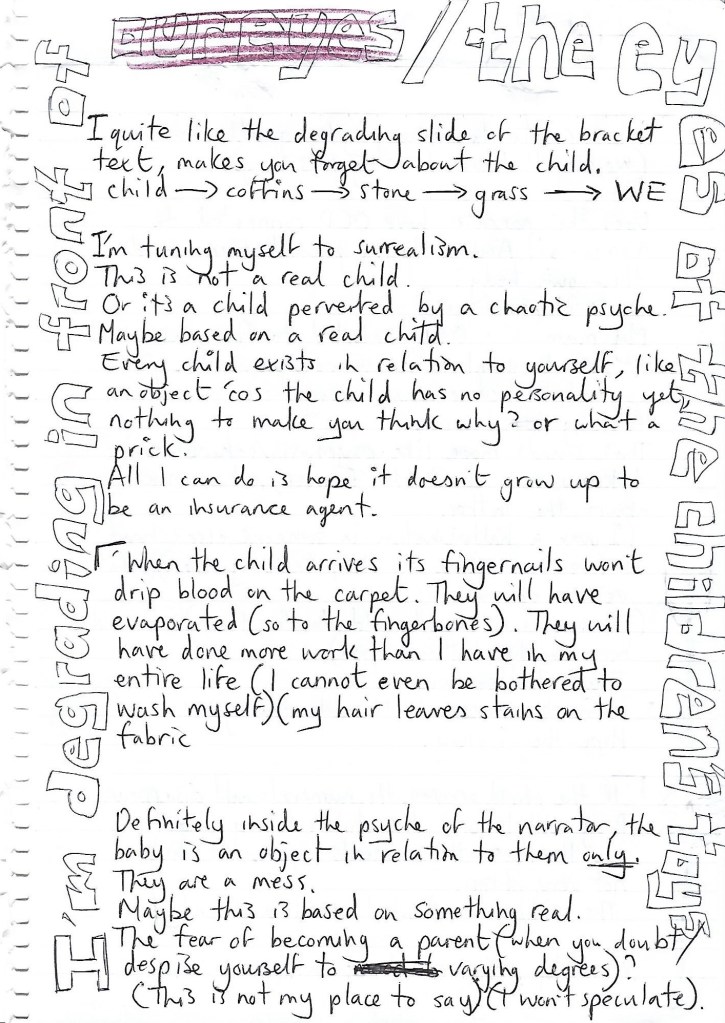 I'm degrading in front of our eyes / the eyes of the children's toys
I quite like the degrading slide of the bracket
text, makes you forget about the child.
child → coffins → stone → grass → WE
I'm tuning myself to surrealism.
This is not a real child.
Or it's a child perverted by a chaotic psyche.
Maybe based on a real child.
Every child exists in relation to yourself, like
an object 'cos the child has no personality yet,
nothing to make you think why? or what a
prick.
All I can do is hope it doesn't grow up to
be an insurance agent.
When the child arrives its fingernails won't
drip blood on the carpet. They will have
evaporated (so to the fingerbones). They will
have done more work than I have in my
entire life (I cannot even be bothered to
wash myself) (my hair leaves stains on the
fabric
Definitely inside the psyche of the narrator, the
baby is an object in relation to them only.
They are a mess.
Maybe this is based on something real.
The fear of becoming a parent (when you doubt/
despise yourself to varying degrees)?
(this is not my place to say) (I won't speculate).